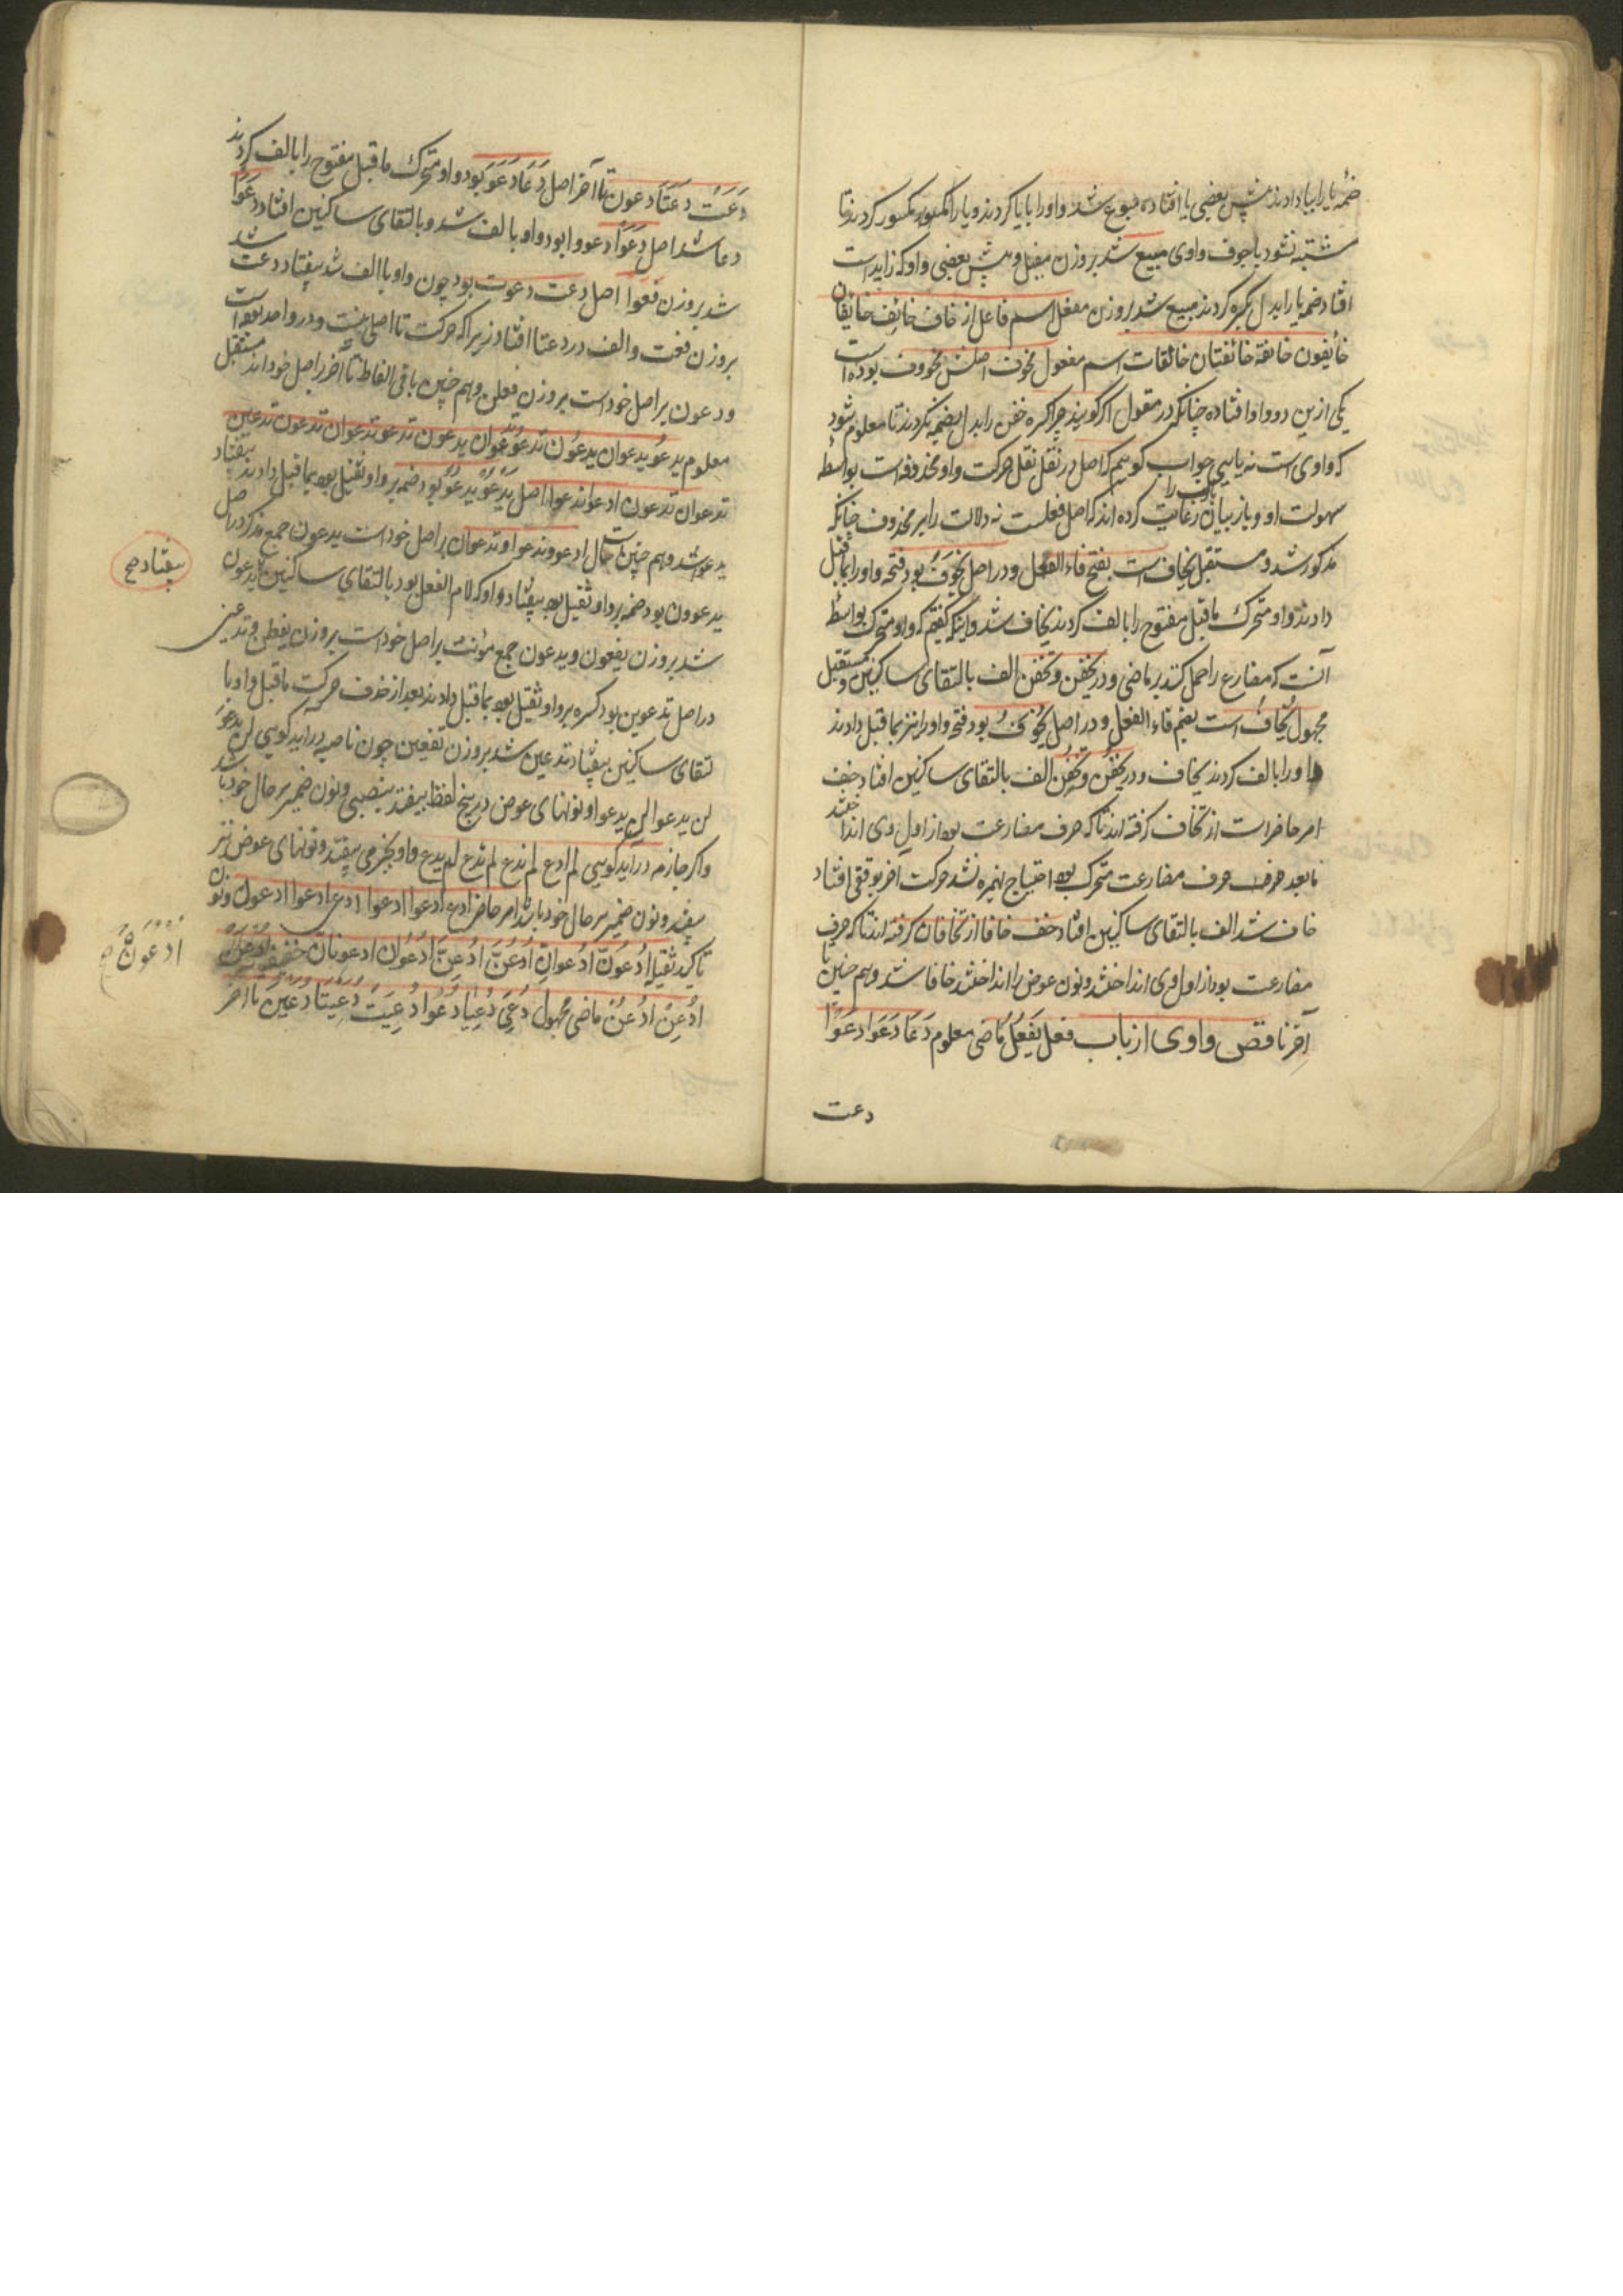 ضمهٔ یا را بیا دادند پس بعضی یا افتاده مبوع شد واو را بایا کردند و یا را مکسور کردند تا
مشتبه نشود باجوف واوی مبیع شد بروزن مفیل و پیش بعضی واو که زایداست
افتاد ضمه یا را بدل بکسره کردند مبیع شد بروزن مفعل اسم فاعل از خاف خائف خائفان
خائفون خائفة خائفتان خائفات اسم مفعول مخوف اصلش مخووف بوده است
یکی ازین دو واو افتاده چنانکه در مقول اگر گویند چرا کسره خفن را بدل بضمه نکردند تا معلوم شود
که واوی است نه یایی جواب گوییم که اصل در نقل نقل حرکت واو محذوفه است بواسطهٔ
سهولت او و باز بیان رعایت باب را کرده اند که اصل فعلست نه دلالت را بر محذوف چنانکه
مذکور شد و مستقبل یخاف است بفتح فاء الفعل و در اصل یَخْوَفُ بود فتحه واو را بماقبل
دادند واو متحرک ماقبل مفتوح را بالف کردند یخاف شد و اینکه گفتیم که واو متحرک بواسطهٔ
آنست که مضارع را حمل کنند بر ماضی و در یخفن و تخفن الف بالتقای ساکنین و مستقبل
مجهول یُخاف است بضم فاء الفعل و در اصل یُخْوَفُ بود فتحه واو را نیز بماقبل دادند
واو را بالف کردند یخاف و در یخفن و تخفن الف بالتقای ساکنین افتاد خف
امر حاضر است از تخاف گرفته اند تا که حرف مضارعت بود از اول وی انداختند
مابعد حرف مضارعت متحرک بود احتیاج بهمزه نشد حرکت آخر بوقفی افتاد
خاف شد الف بالتقای ساکنین افتاد خف خافا از تخافان گرفته اند تا که حرف
مضارعت بود از اول وی انداختند و نون عوض را انداختند خافا شد و هم چنین تا
آخر ناقص واوی از باب فعل یَفعُل ماضی معلوم دَعَا دَعَوَا دَعَوْا
دعت
دَعَتْ دَعَتَا دَعَوْنَ تا آخر اصل دَعَا دَعَوَ بود واو متحرک ماقبل مفتوح را بالف کردند
دعا شد اصل دَعَوْا دعووا بود واو بالف شد و بالتقای ساکنین افتاد دَعَوْا
شد بروزن فَعَوْا اصل دعت دعوت بود چون واو باالف شد بیفتاد دعت شد
بروزن فعت و الف در دعتا افتاد زیرا که حرکت تا اصلی نیست و در واحد افتاده است
و دعون بر اصل خود است بروزن فعلن و هم چنین باقی الفاظ تا آخر بر اصل خوداند مستقبل
معلوم یدعو یدعوان یدعون تدعو تدعوان یدعون تدعو تدعوان تدعون تدعین
تدعوان تدعون ادعو ندعو اصل یَدْعُو یَدْعُوُ بود ضمه بر واو ثقیل بود بماقبل دادند بیفتاد
یدعو شد و هم چنین است حال ادعو و ندعو و تدعوان بر اصل خود است یدعون جمع مذکر در اصل
یدعوون بود ضمه بر واو ثقیل بود بیفتاد واو که لام الفعل بود بالتقای ساکنین یدعون
بیفتاد صح
شد بروزن یفعون و یدعون جمع مؤنث بر اصل خود است بروزن یفعلن و تدعین
در اصل تدعوین بود کسره بر واو ثقیل بود بماقبل دادند بعد از حذف حرکت ماقبل واو با
لتقای ساکنین بیفتاد تدعین شد بروزن تفعین چون ناصبه درآید گویی لن یدعوَ
لن یدعوا لن یدعوا و نونهای عوض در پنج لفظ بیفتد بنصبی و نون ضمیر بر حال خود باشد
و اگر جازمه درآید گویی لم ادع لم ندع لم تدع لم یدع واو بجزمی بیفتد و نونهای عوض نیز
بیفتد و نون ضمیر بر حال خود باشد امر حاضر ادع ادعوا ادعوا ادعی ادعوا ادعون و نون
تاکید ثقیله اُدْعُوَنَّ ادْعُوانِّ اُدْعُنَّ ادْعِنَّ ادْعُوانِّ ادعونانّ خفیفه اُدْعُوَنْ
ادعُوَنَّ صح
ادْعُنْ ادْعِنْ ماضی مجهول دُعِیَ دُعِیَا دُعُوا دُعِیَتْ دُعِیَتَا دُعِینَ تا آخر